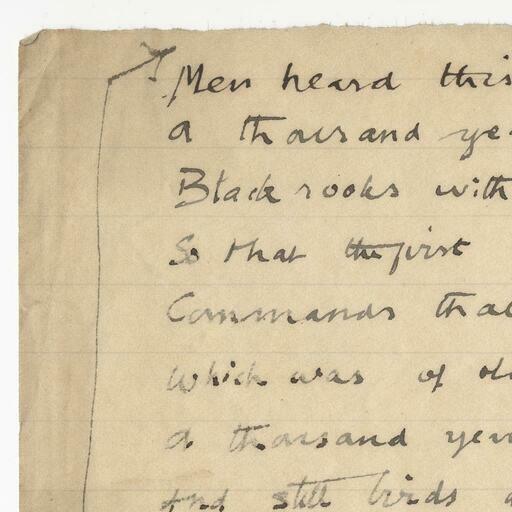 Men heard this
a thousand ye
Black rooks with
So that the first
Commands that
which was of ol
a thousand year
And still birds a